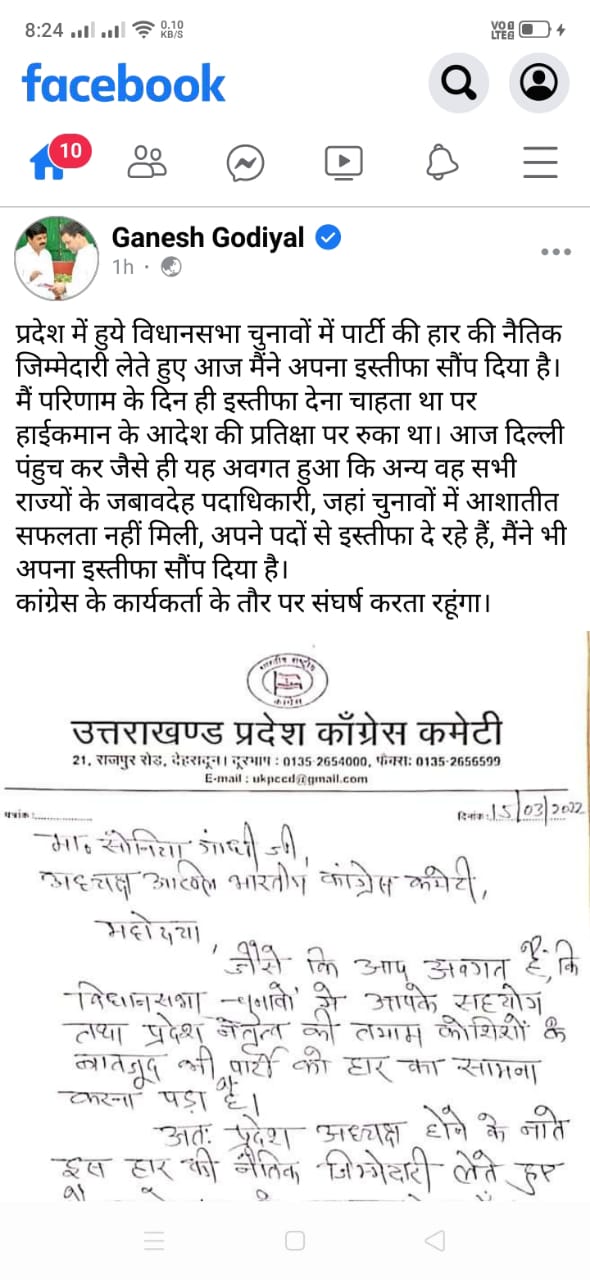 8:24
0.10
KB/S
VO
LTE
facebook
10
Ganesh Godiyal
1h ·
प्रदेश में हुये विधानसभा चुनावों में पार्टी की हार की नैतिक
जिम्मेदारी लेते हुए आज मैंने अपना इस्तीफा सौंप दिया है।
मैं परिणाम के दिन ही इस्तीफा देना चाहता था पर
हाईकमान के आदेश की प्रतिक्षा पर रुका था। आज दिल्ली
पंहुच कर जैसे ही यह अवगत हुआ कि अन्य वह सभी
राज्यों के जबावदेह पदाधिकारी, जहां चुनावों में आशातीत
सफलता नहीं मिली, अपने पदों से इस्तीफा दे रहे हैं, मैंने भी
अपना इस्तीफा सौंप दिया है।
कांग्रेस के कार्यकर्ता के तौर पर संघर्ष करता रहूंगा।
भारतीय राष्ट्रीय
कांग्रेस
उत्तराखण्ड प्रदेश काँग्रेस कमेटी
21, राजपुर रोड, देहरादून। दूरभाष : 0135-2654000, फैक्स: 0135-2656599
E-mail : ukpccd@gmail.com
पत्रांक :
दिनांक: 15/03/2022
मा० सोनिया गांधी जी,
अध्यक्ष अखिल भारतीय कांग्रेस कमेटी,
महोदया,
जैसे कि आप अवगत हैं, कि
विधानसभा चुनावों में आपके सहयोग
तथा प्रदेश नेतृत्व की तमाम कोशिशों के
बावजूद भी पार्टी को हार का सामना
करना पड़ा है।
अतः प्रदेश अध्यक्ष होने के नाते
इस हार की नैतिक जिम्मेदारी लेते हुए